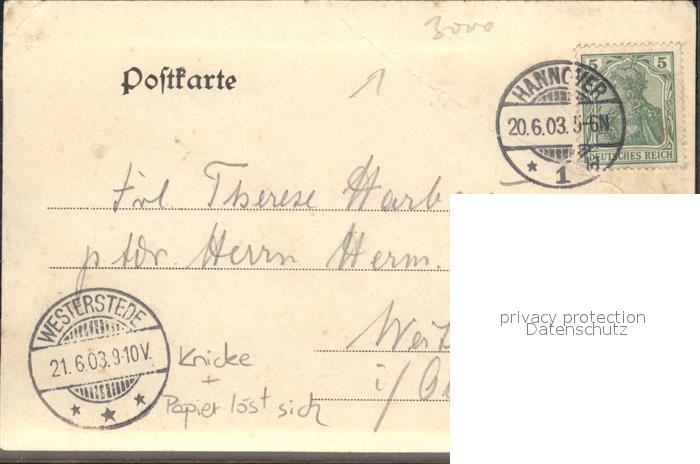 3000
Postkarte
5 5
DEUTSCHES REICH
HANNOVER
20.6.03. 5-6N.
* 1
Frl Therese
p Adr. Herrn Herm.
privacy protection
Datenschutz
WESTERSTEDE
21.6.03.9-10V.
Knicke
+
Papier löst sich
i/